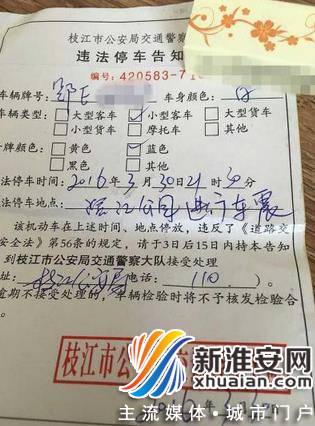 枝江市公安局交通警察
违法停车告知
编号：420583-71
车辆牌号：鄂E 车身颜色：白
车辆类型： 大型客车 小型客车 大型货车
小型货车 摩托车 其他
牌颜色： 黄色 蓝色
黑色 其他
法停车时间：2016年3月30日21时30分
法停车地点：滨江公园进行车震
该机动车在上述时间、地点停放，违反了《道路交
安全法》第56条的规定，请于3日后15日内持本告知
到枝江市公安局交通警察大队接受处理
址：枝江公安局 电话：（110）。
逾期不接受处理的，车辆检验时将不予核发检验合
枝江市公安局交
2016年3月30
新淮安网
xhuaian.com
主流媒体·城市门户